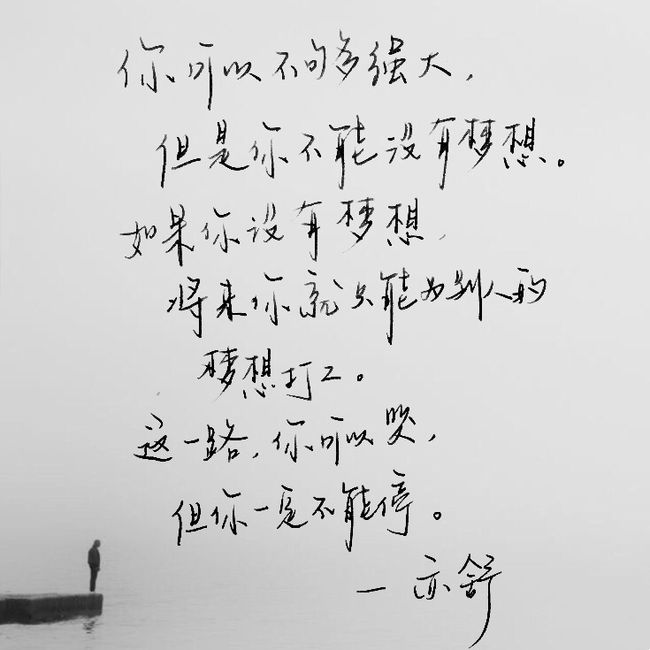 你可以不够多强大，
但是你不能没有梦想。
如果你没有梦想，
将来你就只能为别人的
梦想打工。
这一路，你可以哭，
但你一定不能停。
一亦舒